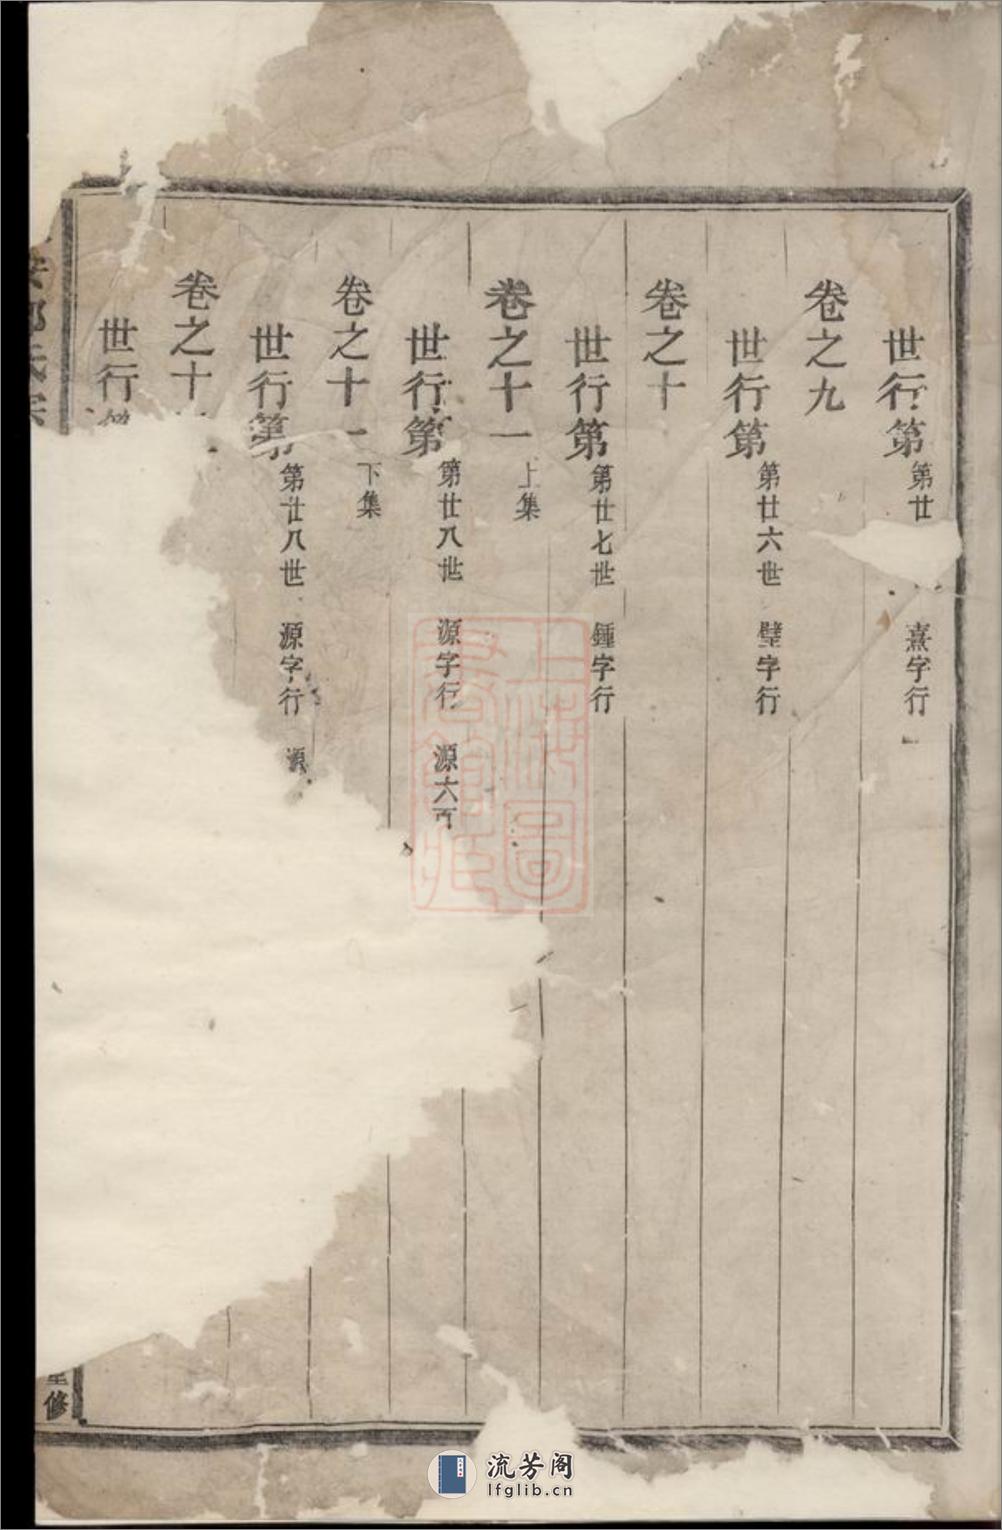 世行第 第廿 熹字行
卷之九
世行第 第廿六世 璧字行
卷之十
世行第 第廿七世 鍾字行
卷之十一 上集
世行第 第廿八世 源字行 源六百
卷之十一 下集
世行第 第廿八世 源字行 源
卷之十
世行
氏宗
修
上海圖書館藏
流芳阁
lfglib.cn